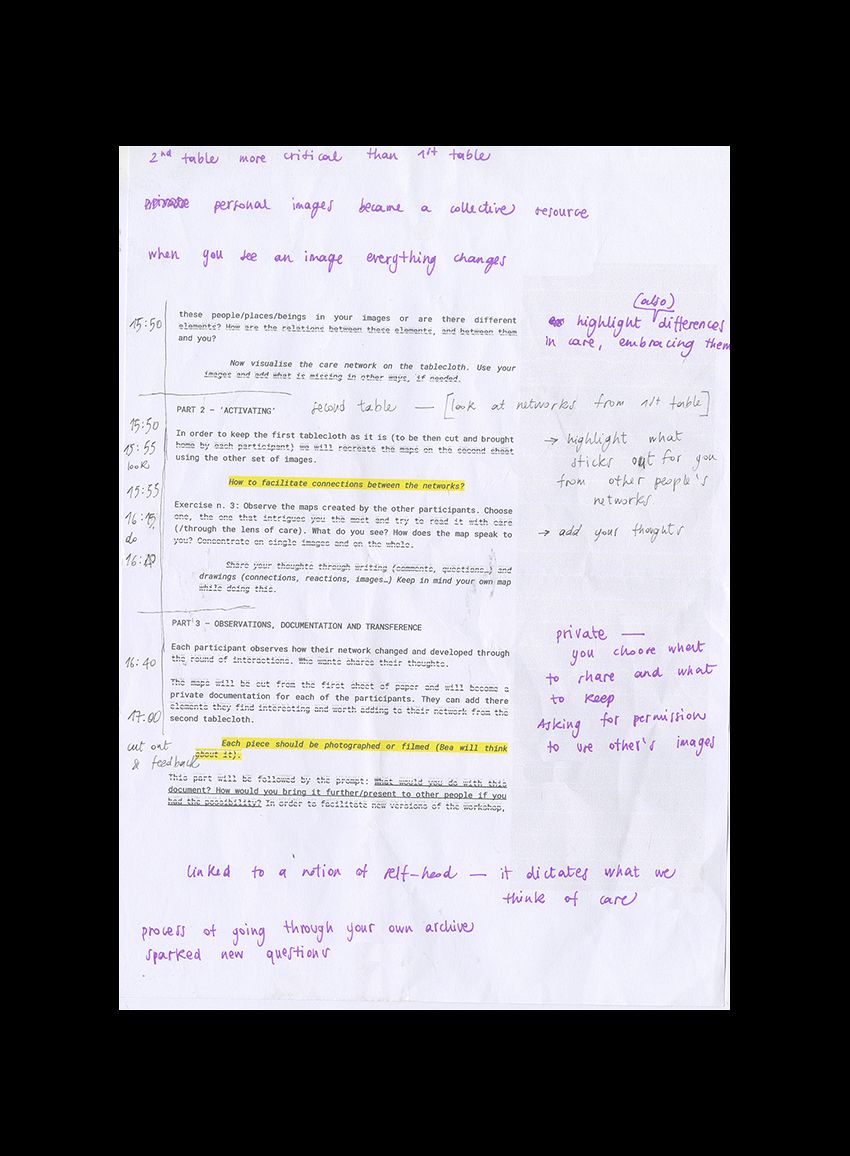 2nd table more critical than 1st table
personal images became a collective resource
when you see an image everything changes
(also)
highlight differences
in care, embracing them
15:50
these people/places/beings in your images or are there different
elements? How are the relations between these elements, and between them
and you?
Now visualise the care network on the tablecloth. Use your
images and add what is missing in other ways, if needed.
PART 2 – 'ACTIVATING'
second table — [look at networks from 1st table]
15:50
15:55
look
15:55
16:15
do
In order to keep the first tablecloth as it is (to be then cut and brought
home by each participant) we will recreate the maps on the second sheet
using the other set of images.
How to facilitate connections between the networks?
Exercise n. 3: Observe the maps created by the other participants. Choose
one, the one that intrigues you the most and try to read it with care
(/through the lens of care). What do you see? How does the map speak to
you? Concentrate on single images and on the whole.
Share your thoughts through writing (comments, questions…) and
drawings (connections, reactions, images…) Keep in mind your own map
while doing this.
→ highlight what
sticks out for you
from other people's
networks
→ add your thoughts
PART 3 – OBSERVATIONS, DOCUMENTATION AND TRANSFERENCE
16:40
Each participant observes how their network changed and developed through
the round of interactions. Who wants shares their thoughts.
The maps will be cut from the first sheet of paper and will become a
private documentation for each of the participants. They can add there
elements they find interesting and worth adding to their network from the
second tablecloth.
17:00
cut out
& feedback
Each piece should be photographed or filmed (Bea will think
about it).
This part will be followed by the prompt: What would you do with this
document? How would you bring it further/present to other people if you
had the possibility? In order to facilitate new versions of the workshop,
private —
you choose what
to share and what
to keep
Asking for permission
to use other's images
linked to a notion of self-hood — it dictates what we
think of care
process of going through your own archive
sparked new questions